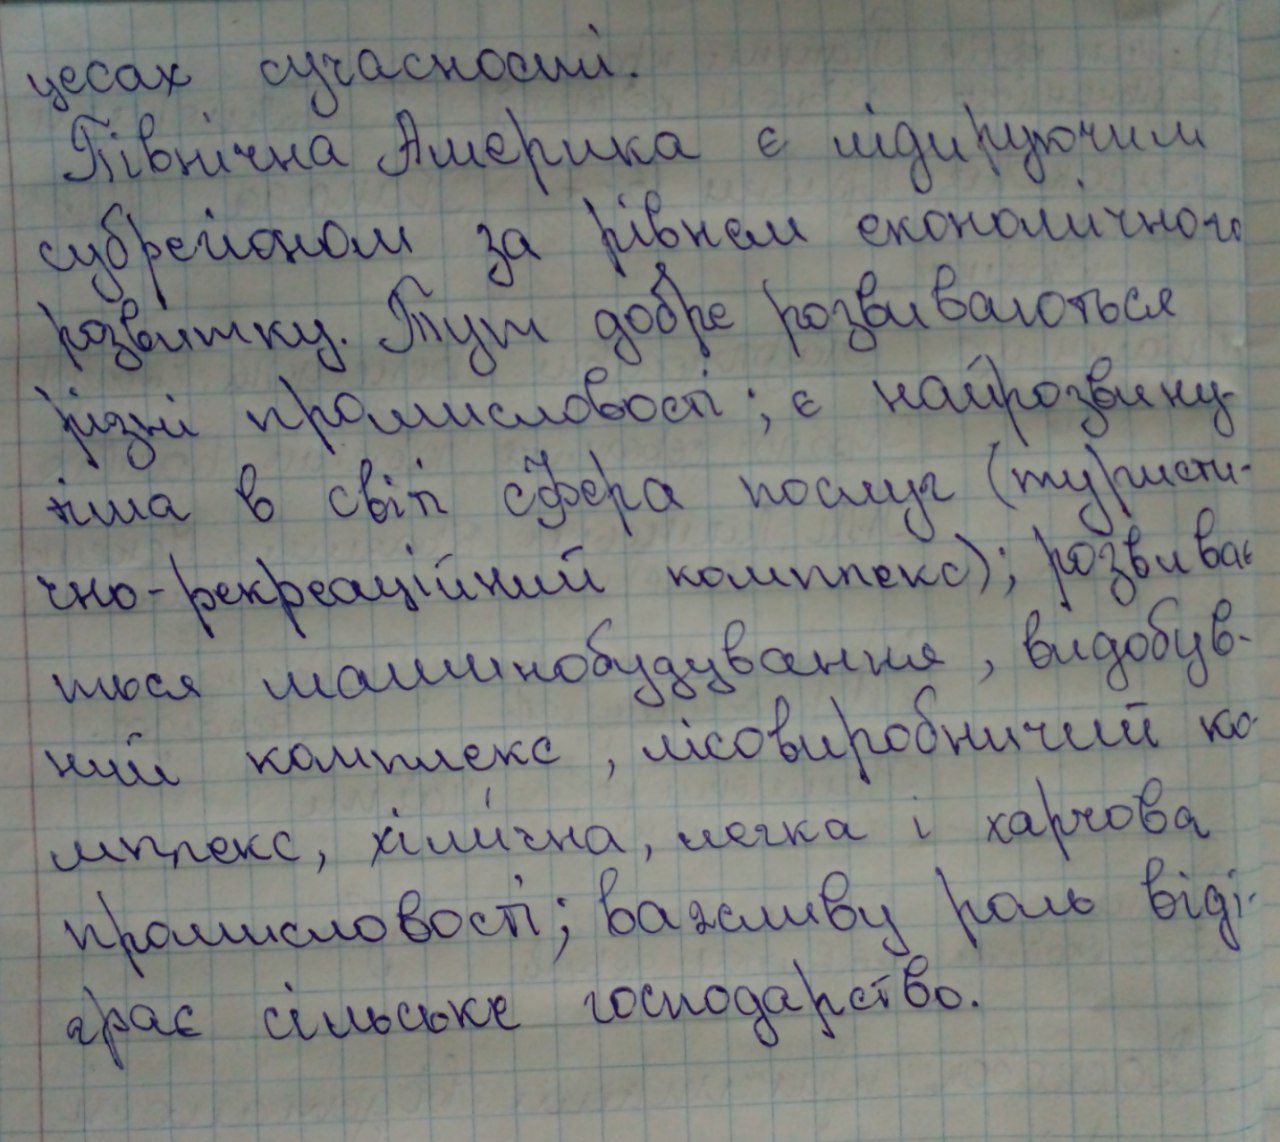 цесах сучасності.
Північна Америка є лідируючим
субрегіоном за рівнем економічного
розвитку. Тут добре розвиваються
різні промисловості; є найрозвину-
тіша в світі сфера послуг (туристи-
чно-рекреаційний комплекс); розвиває
ться машинобудування, видобув-
ний комплекс, лісовиробничий ко-
мплекс, хімічна, легка і харчова
промисловості; важливу роль віді-
грає сільське господарство.